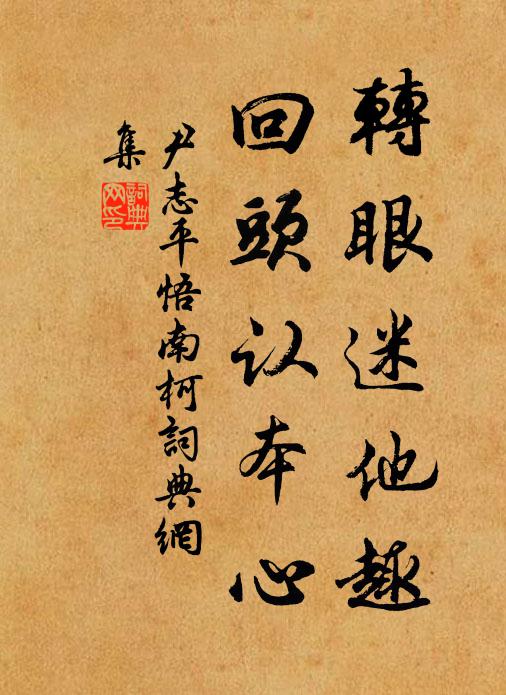 轉眼迷他趣
回頭认本心
尹志平悟南柯詞典網
集
詞典网印